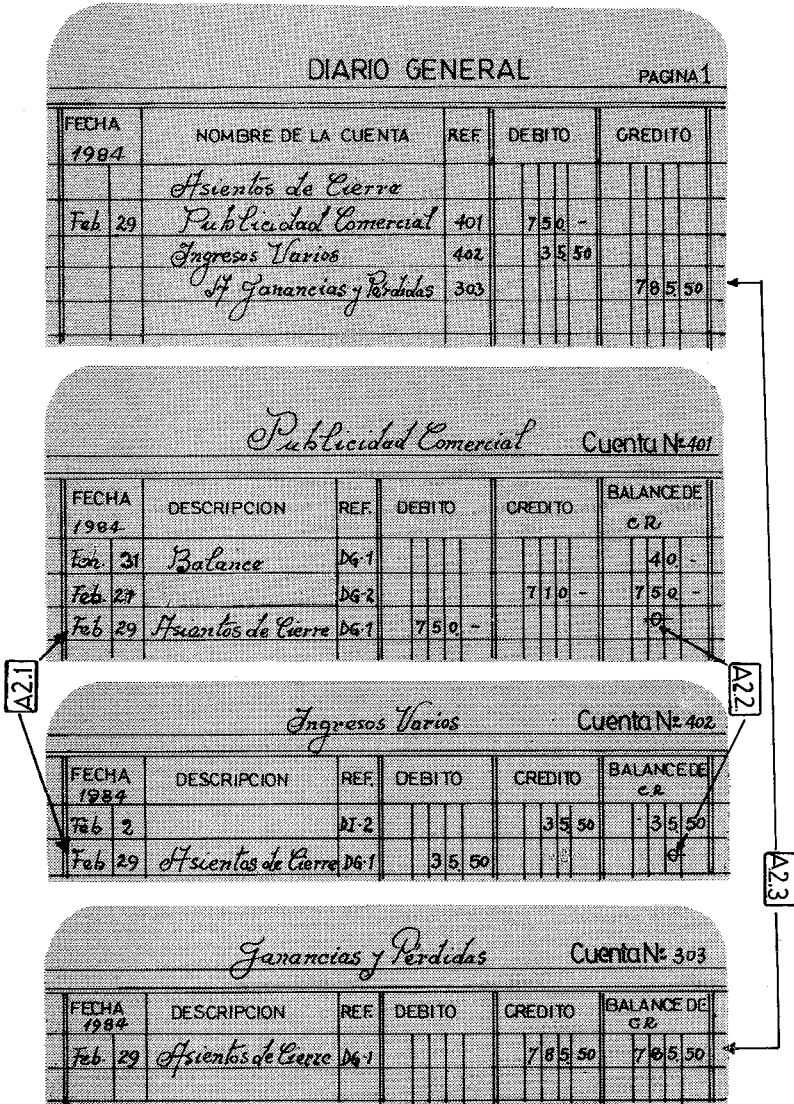 DIARIO GENERAL PAGINA 1
FECHA 1984 NOMBRE DE LA CUENTA REF. DEBITO CREDITO
Asientos de Cierre
Feb 29 Publicidad Comercial 401 750 -
Ingresos Varios 402 35 50
A Ganancias y Perdidas 303 785 50
Publicidad Comercial Cuenta Nº 401
FECHA 1984 DESCRIPCION REF. DEBITO CREDITO BALANCE DE CR
31 Balance DG-1 40 -
Feb. 27 DG-2 710 - 750 -
Feb 29 Asientos de Cierre DG-1 750 - -0-
A2.1
A2.2
Ingresos Varios Cuenta Nº 402
FECHA 1984 DESCRIPCION REF. DEBITO CREDITO BALANCE DE CR
Feb 2 DI-2 35 50 35 50
Feb 29 Asientos de Cierre DG-1 35 50 -0-
A2.3
Ganancias y Perdidas Cuenta Nº 303
FECHA 1984 DESCRIPCION REF. DEBITO CREDITO BALANCE DE CR
Feb. 29 Asientos de Cierre DG-1 785 50 785 50